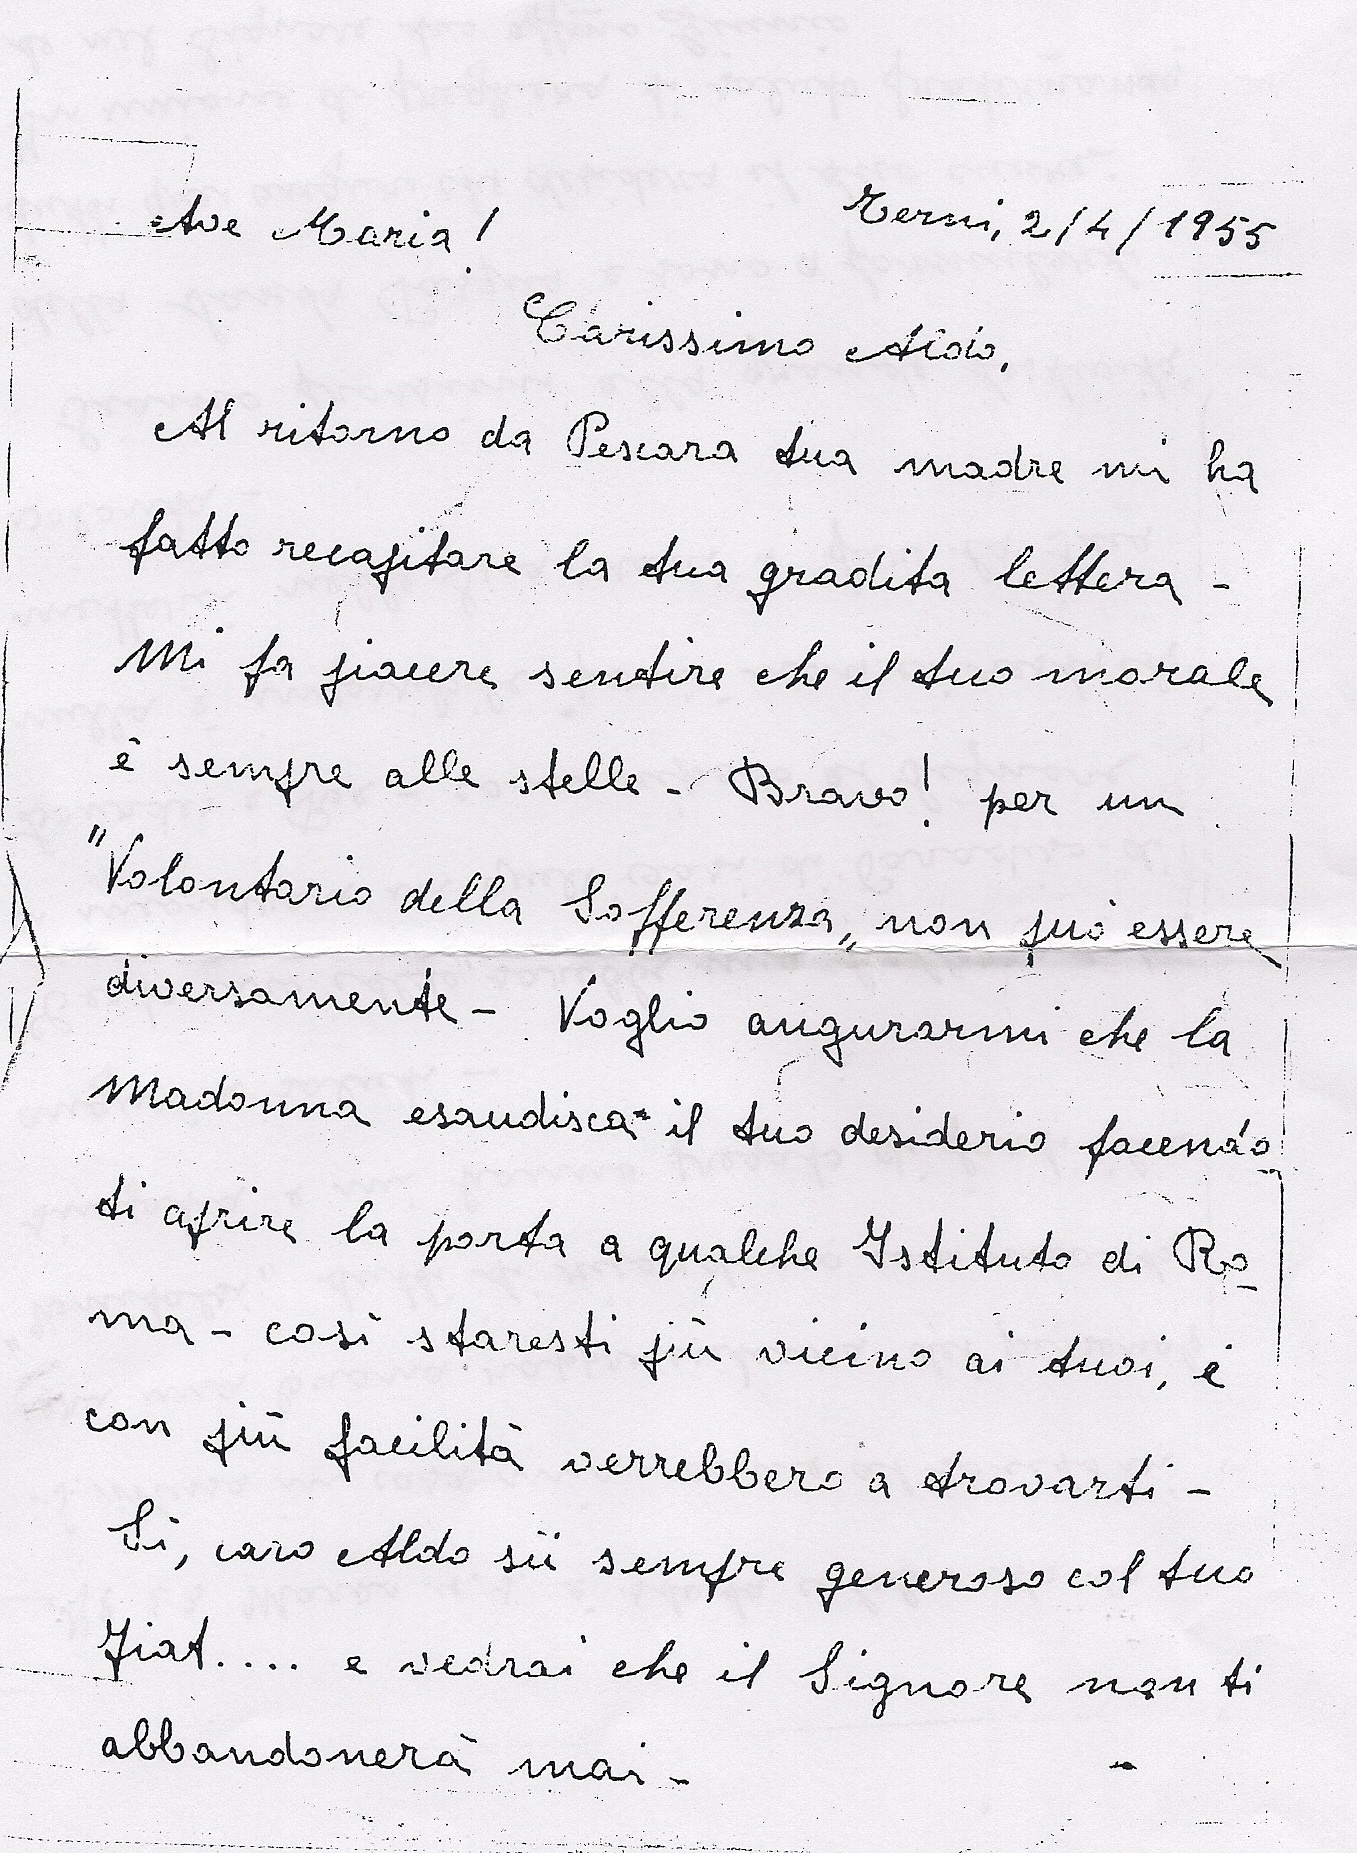 Ave Maria! Terni, 2/4/1955
Carissimo Aldo,
Al ritorno da Pescara tua madre mi ha
fatto recapitare la tua gradita lettera -
Mi fa piacere sentire che il tuo morale
è sempre alle stelle - Bravo! per un
"Volontario della Sofferenza„ non può essere
diversamente - Voglio augurarmi che la
Madonna esaudisca il tuo desiderio facendo
ti aprire la porta a qualche Istituto di Ro
ma - così staresti più vicino ai tuoi, e
con più facilità verrebbero a trovarti -
Si, caro Aldo sii sempre generoso col tuo
Fiat.... e vedrai che il Signore non ti
abbandonerà mai -